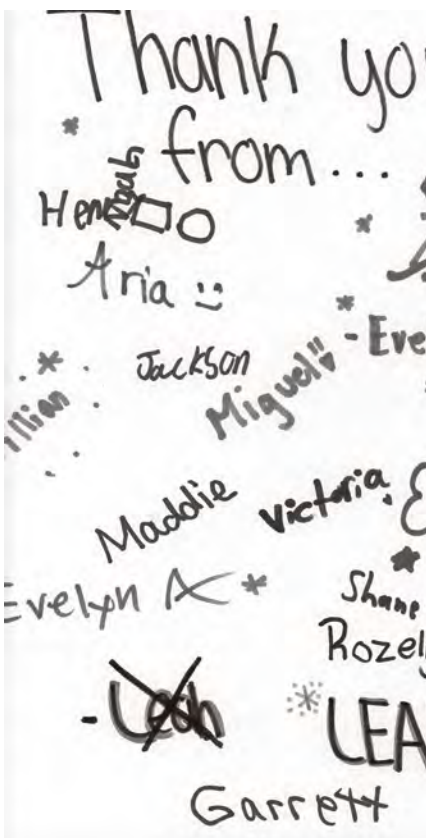 Thank you
from...
Noah
Aria :)
Jackson
- Eve
Miguel
llian
Maddie
Victoria
Evelyn A
Shane
Rozel
- Leah
LEA
Garrett